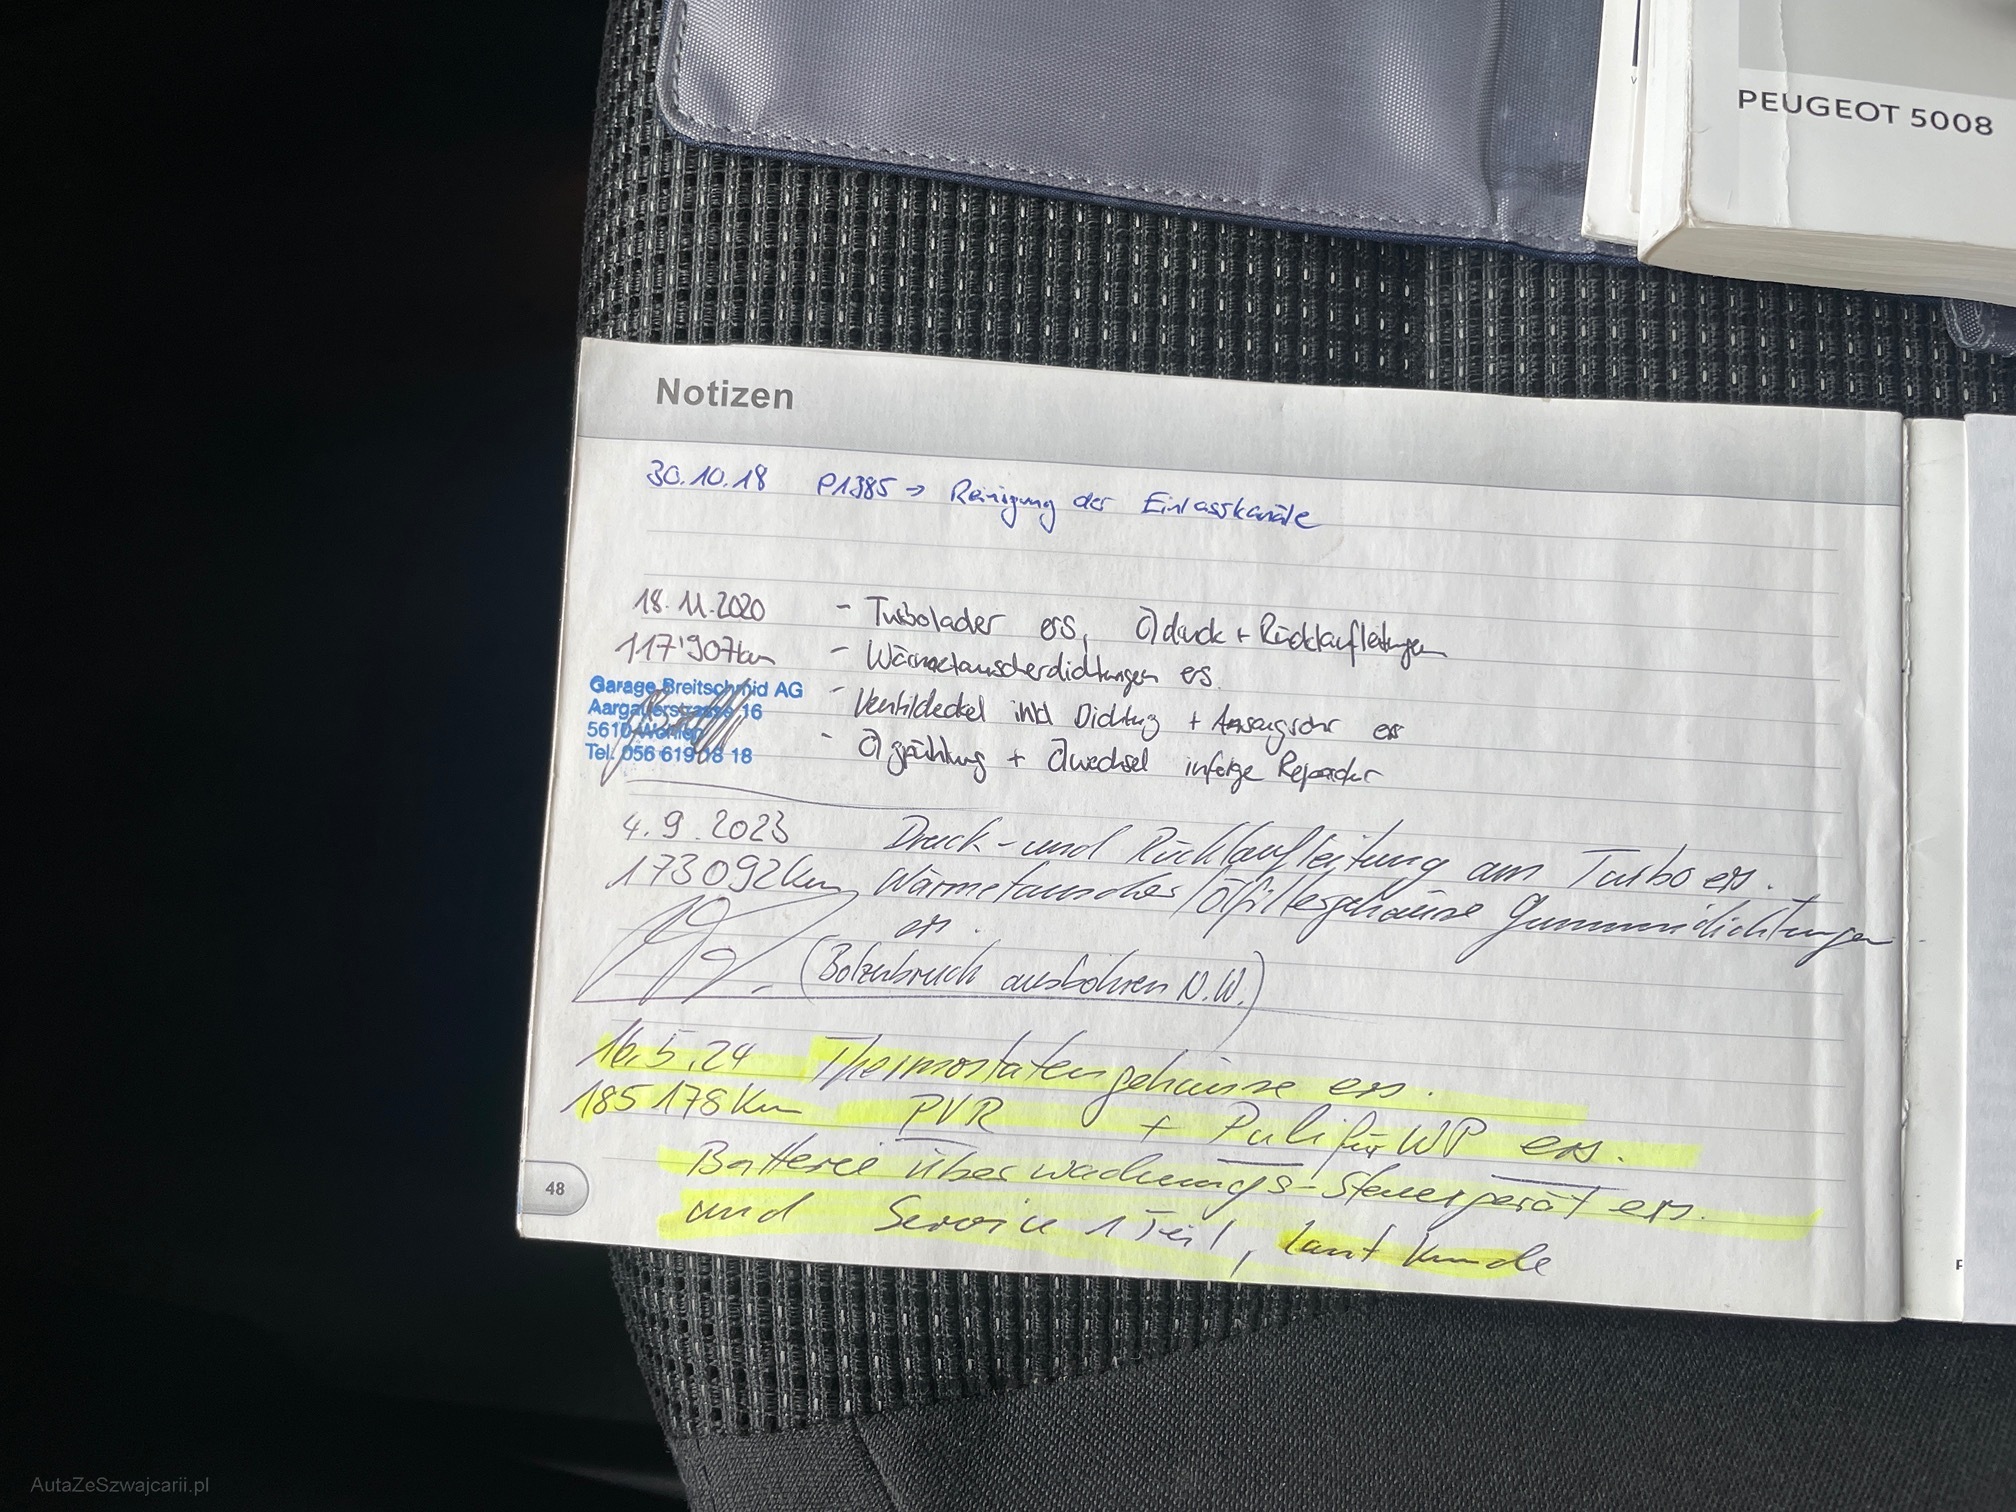 PEUGEOT 5008
Notizen
30.10.18 P1385 → Reinigung der Einlasskanäle
18.11.2020 - Turbolader ers, Öldruck + Rücklaufleitungen
117'907km - Wärmetauscherdichtungen ers.
Garage Breitschmid AG
Aargauerstrasse 16
5610 Wohlen
Tel. 056 619 18 18
- Ventildeckel inkl Dichtung + Ansaugrohr ers
- Ölspühlung + Ölwechsel infolge Reparatur
4.9.2023 Druck- und Rücklaufleitung am Turbo ers.
173092km Wärmetauscher/Ölfiltergehäuse Gummidichtungen
ers.
(Bolzenbruch ausbohren N.W.)
16.5.24 Thermostatengehäuse ers.
185178Km PVR + Puli für WP ers.
Batterie überwachungs-Steuergerät ers.
und Service 1 Teil, laut Kunde
48
AutaZeSzwajcarii.pl